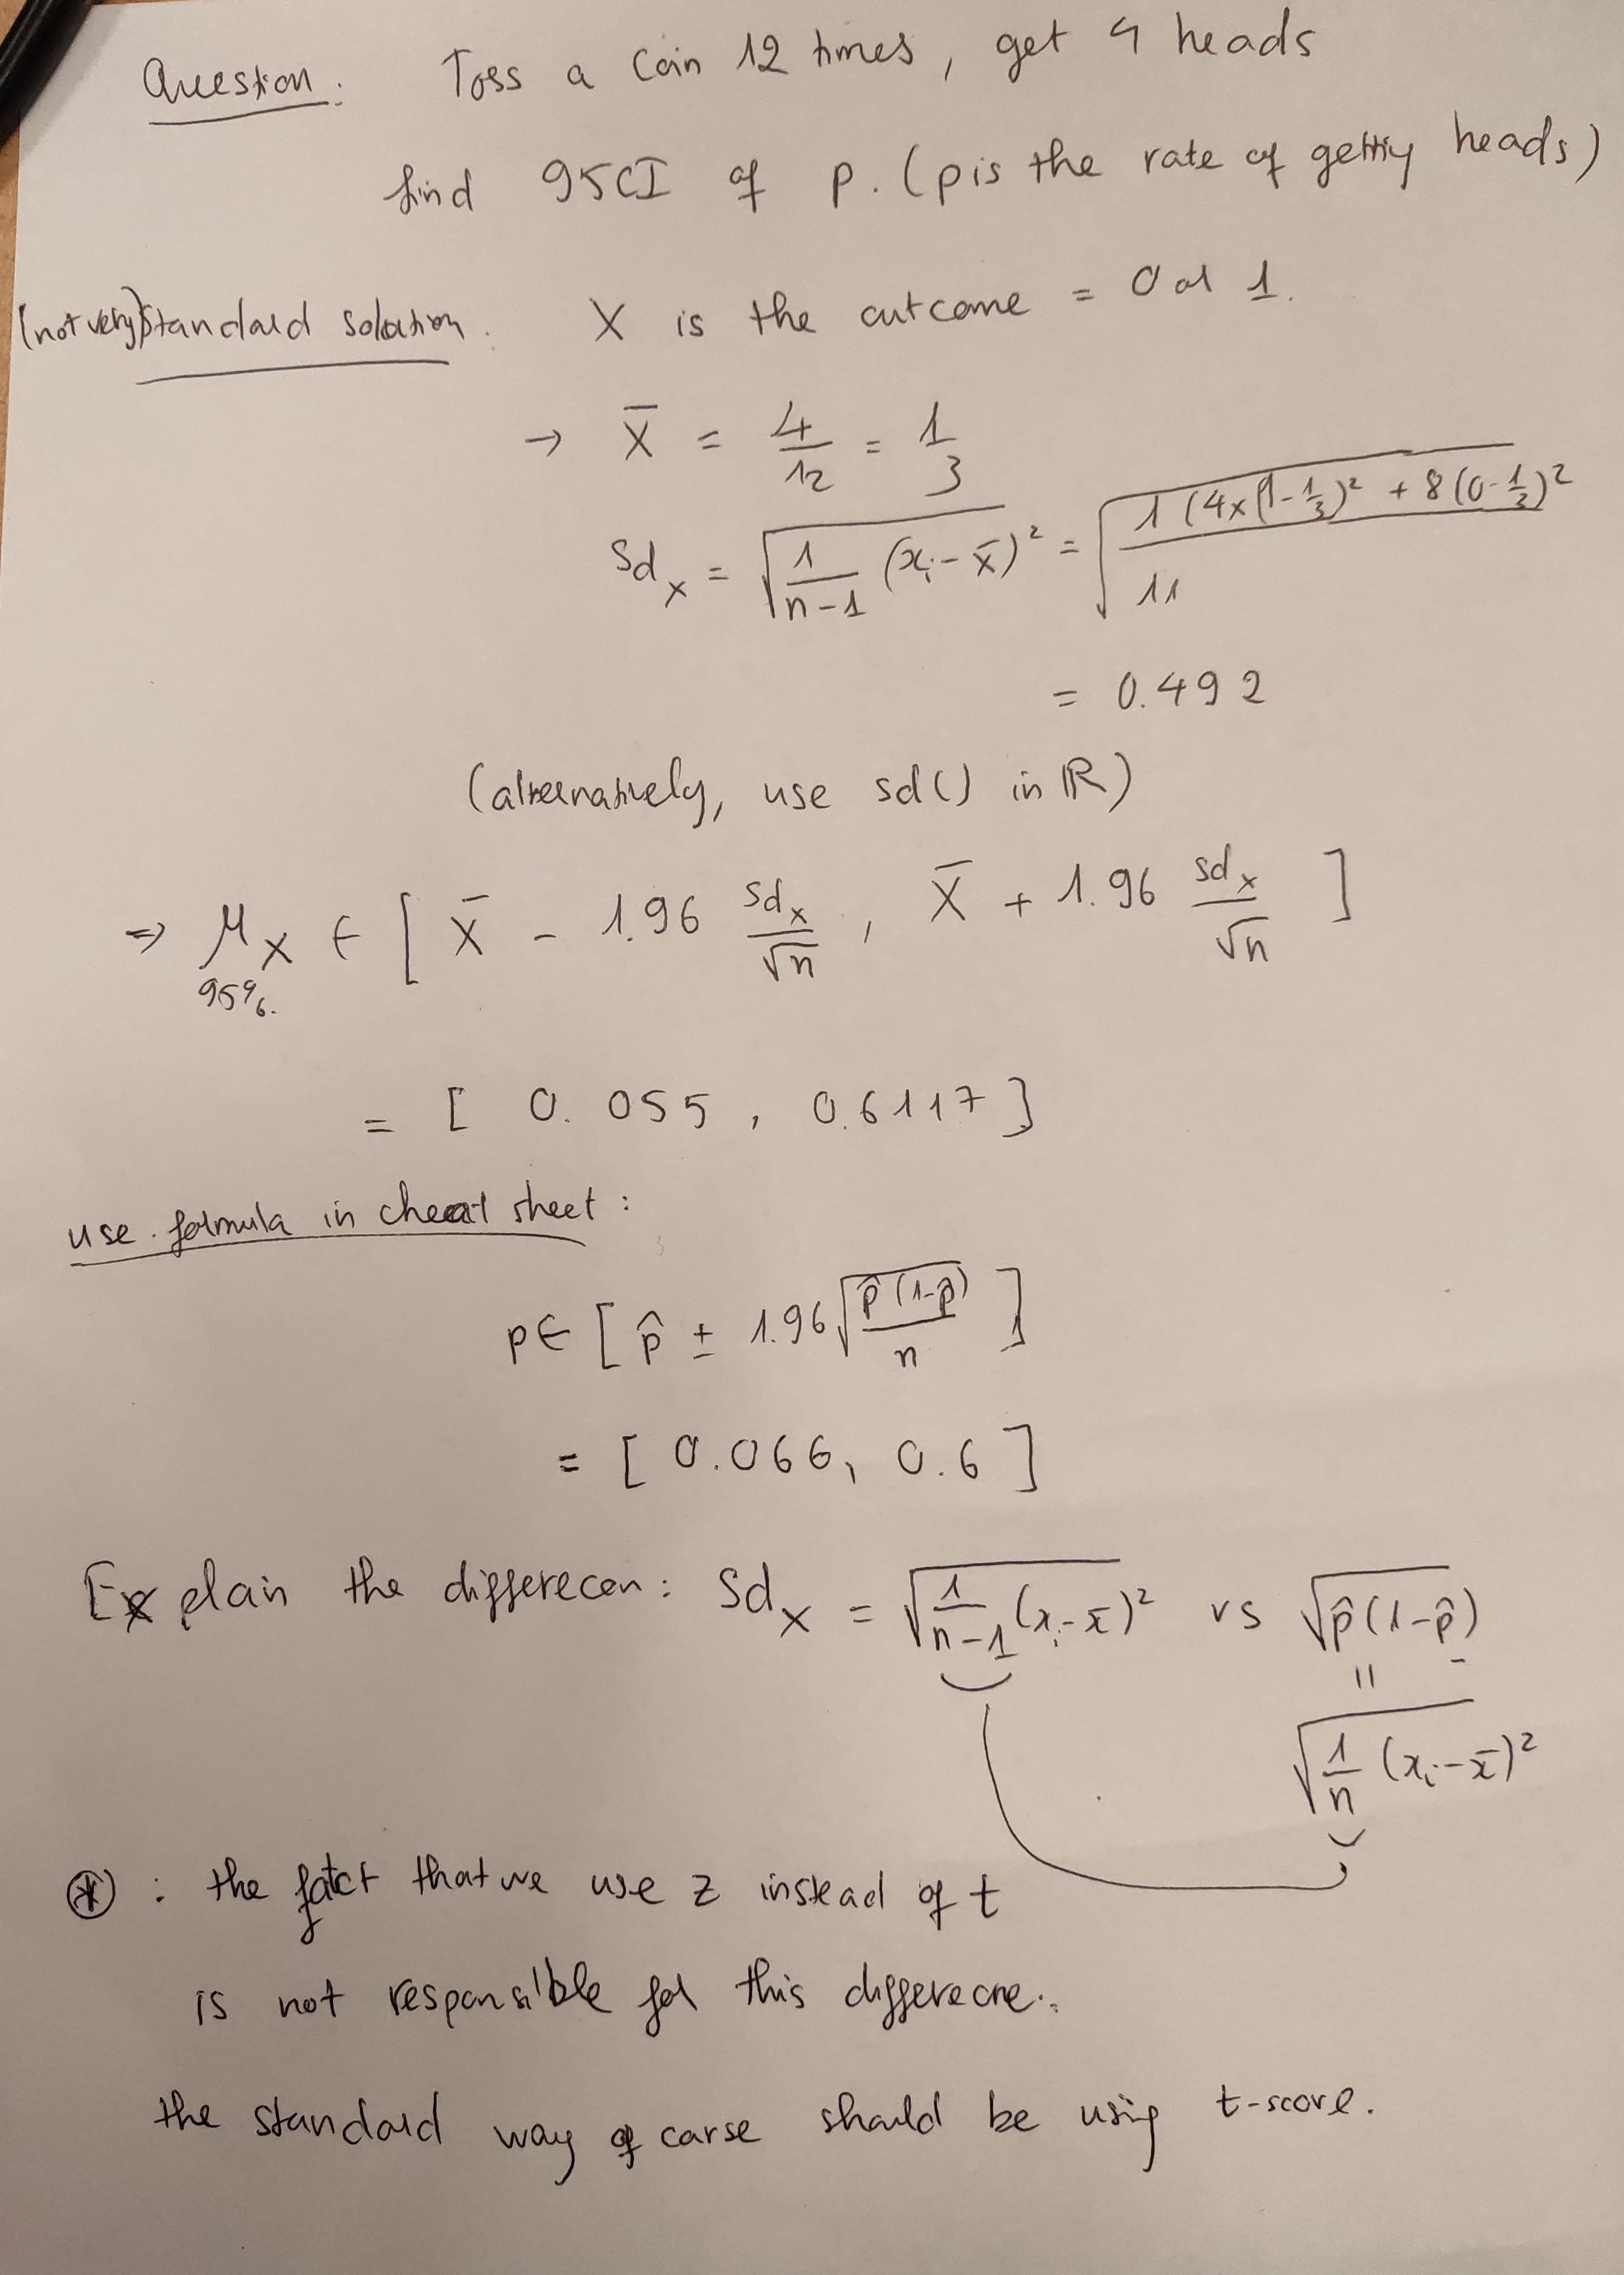 Question: Toss a coin 12 times, get 4 heads
find 95CI of p. (p is the rate of getting heads)
(not very) standard solution. X is the outcome = 0 or 1.
→ X̄ = 4/12 = 1/3
sd_x = √(1/(n-1) (x_i - x̄)²) = √(1 (4×(1-1/3)² + 8(0-1/3)² / 11)
= 0.492
(alternatively, use sd() in R)
⇒ μ_x ∈ [ X̄ - 1.96 sd_x/√n , X̄ + 1.96 sd_x/√n ]
95%.
= [ 0.055 , 0.6117 ]
use formula in cheat sheet:
p ∈ [ p̂ ± 1.96 √(p̂(1-p̂)/n) ]
= [ 0.066, 0.6 ]
Explain the differecen: sd_x = √(1/(n-1) (x_i - x̄)²) vs √(p̂(1-p̂))
=
√(1/n (x_i - x̄)²)
⊛ : the fatct that we use z instead of t
is not responsible for this differecne.
the standard way of carse should be using t-score.